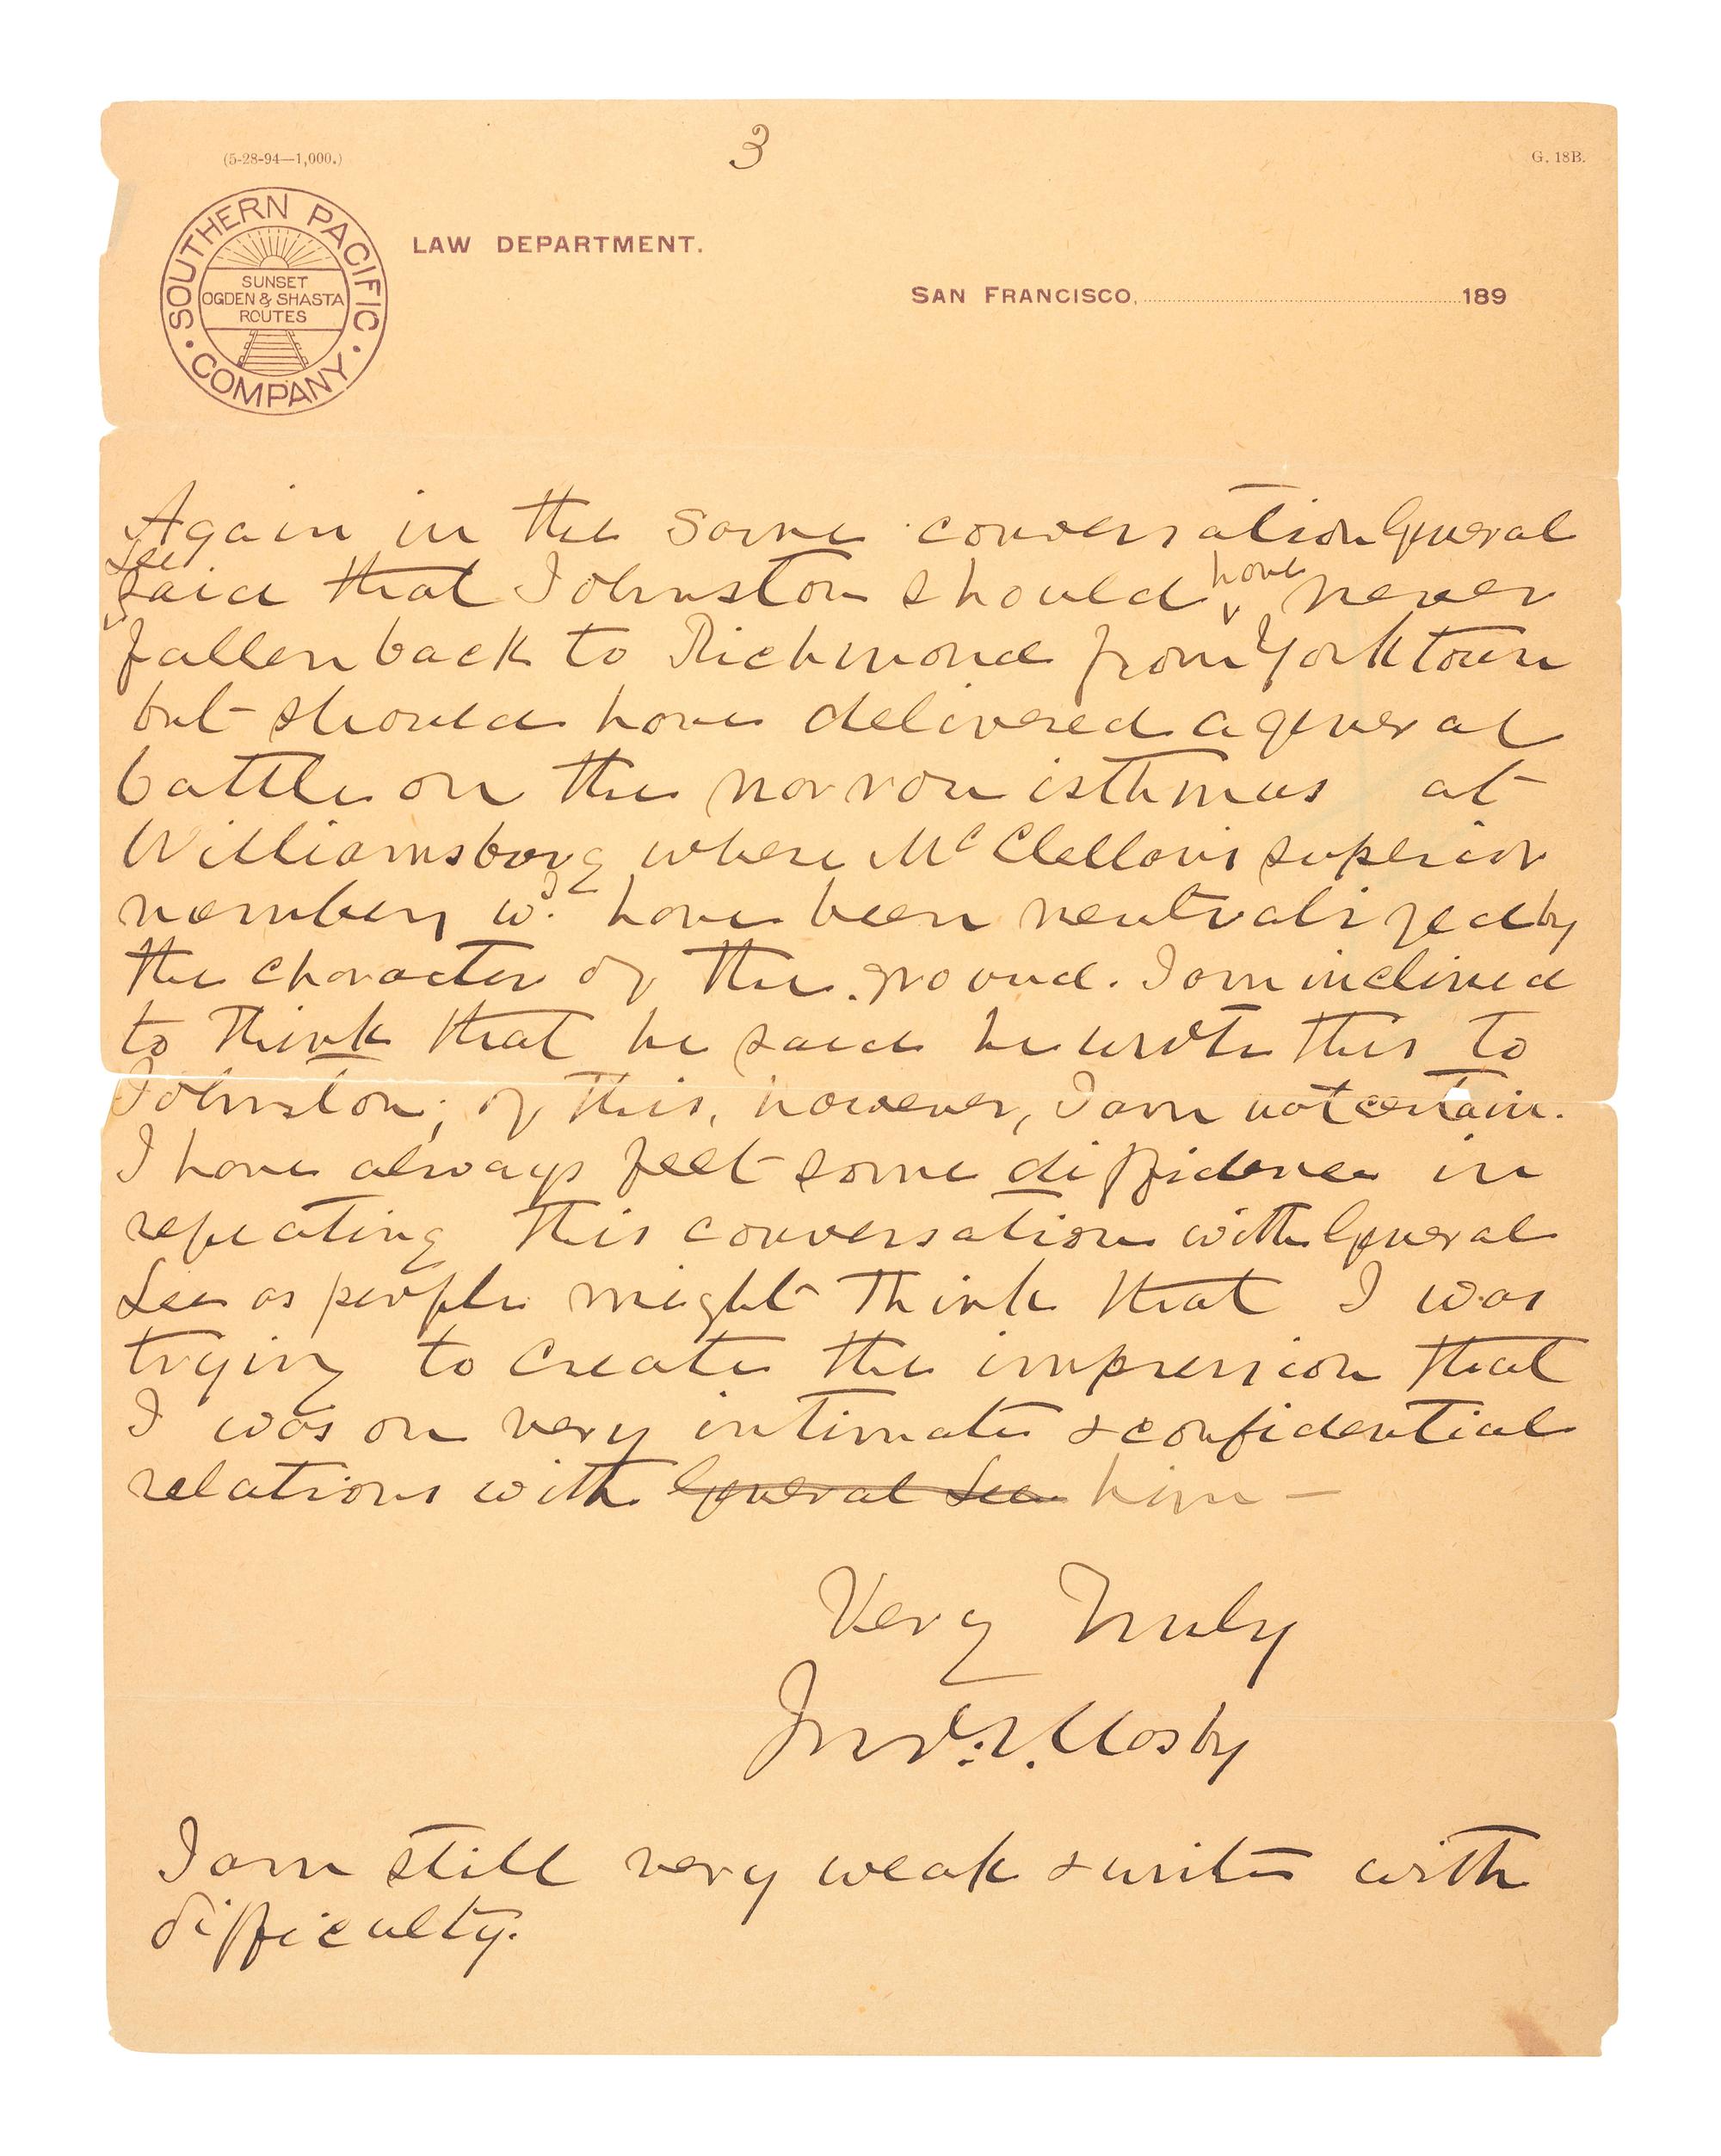 (5-28-94—1,000.)
3
G. 18B.
SOUTHERN PACIFIC COMPANY
SUNSET
OGDEN & SHASTA
ROUTES
LAW DEPARTMENT.
SAN FRANCISCO, 189
Again in the same conversation General
Lee
said that Johnston should have never
fallen back to Richmond from Yorktown
but should have delivered a general
battle on the narrow isthmus at
Williamsburg where McClellan's superior
numbers wd. have been neutralized by
the character of the ground. I am inclined
to think that he said he wrote this to
Johnston; of this, however, I am not certain.
I have always felt some diffidence in
repeating this conversation with General
Lee as people might think that I was
trying to create the impression that
I was on very intimate & confidential
relations with General Lee him —
Very Truly
Jno. S. Mosby
I am still very weak & write with
difficulty.